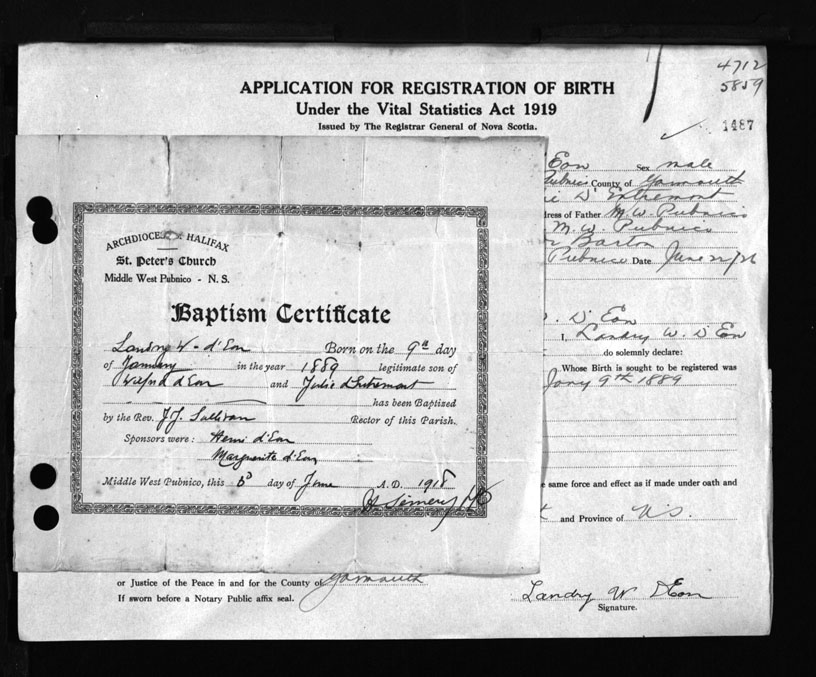 4712
5859
APPLICATION FOR REGISTRATION OF BIRTH
Under the Vital Statistics Act 1919
Issued by The Registrar General of Nova Scotia.
1487
Eon Sex male
Pubnico County of Yarmouth
D'Entremont
Address of Father M. W. Pubnico
M. W. Pubnico
Barton
Pubnico Date June 22/26
D'Eon
I, Landry W. D'Eon
do solemnly declare:
Whose Birth is sought to be registered was
Jany 9th 1889
same force and effect as if made under oath and
and Province of N.S.
ARCHDIOCESE OF HALIFAX
St. Peter's Church
Middle West Pubnico - N. S.
Baptism Certificate
Landry W. d'Eon Born on the 9th day
of January in the year 1889 legitimate son of
Wilfrid d'Eon and Julie d'Entremont
has been Baptized
by the Rev. J. J. Sullivan Rector of this Parish.
Sponsors were: Henri d'Eon
Marguerite d'Eon
Middle West Pubnico, this day of June A.D. 1918
or Justice of the Peace in and for the County of Yarmouth
If sworn before a Notary Public affix seal.
Landry W D'Eon
Signature.